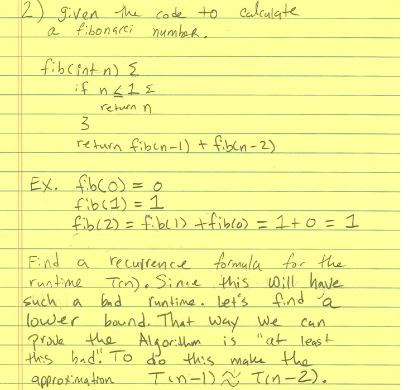 2) given the code to calculate
a fibonacci number.
fib(int n) {
if n ≤ 1 {
return n
}
return fib(n-1) + fib(n-2)
EX. fib(0) = 0
fib(1) = 1
fib(2) = fib(1) + fib(0) = 1 + 0 = 1
Find a recurrence formula for the
runtime T(n). Since this will have
such a bad runtime. let's find a
lower bound. That way we can
prove the Algorithm is "at least
this bad". To do this make the
approximation T(n-1) ≈ T(n-2).